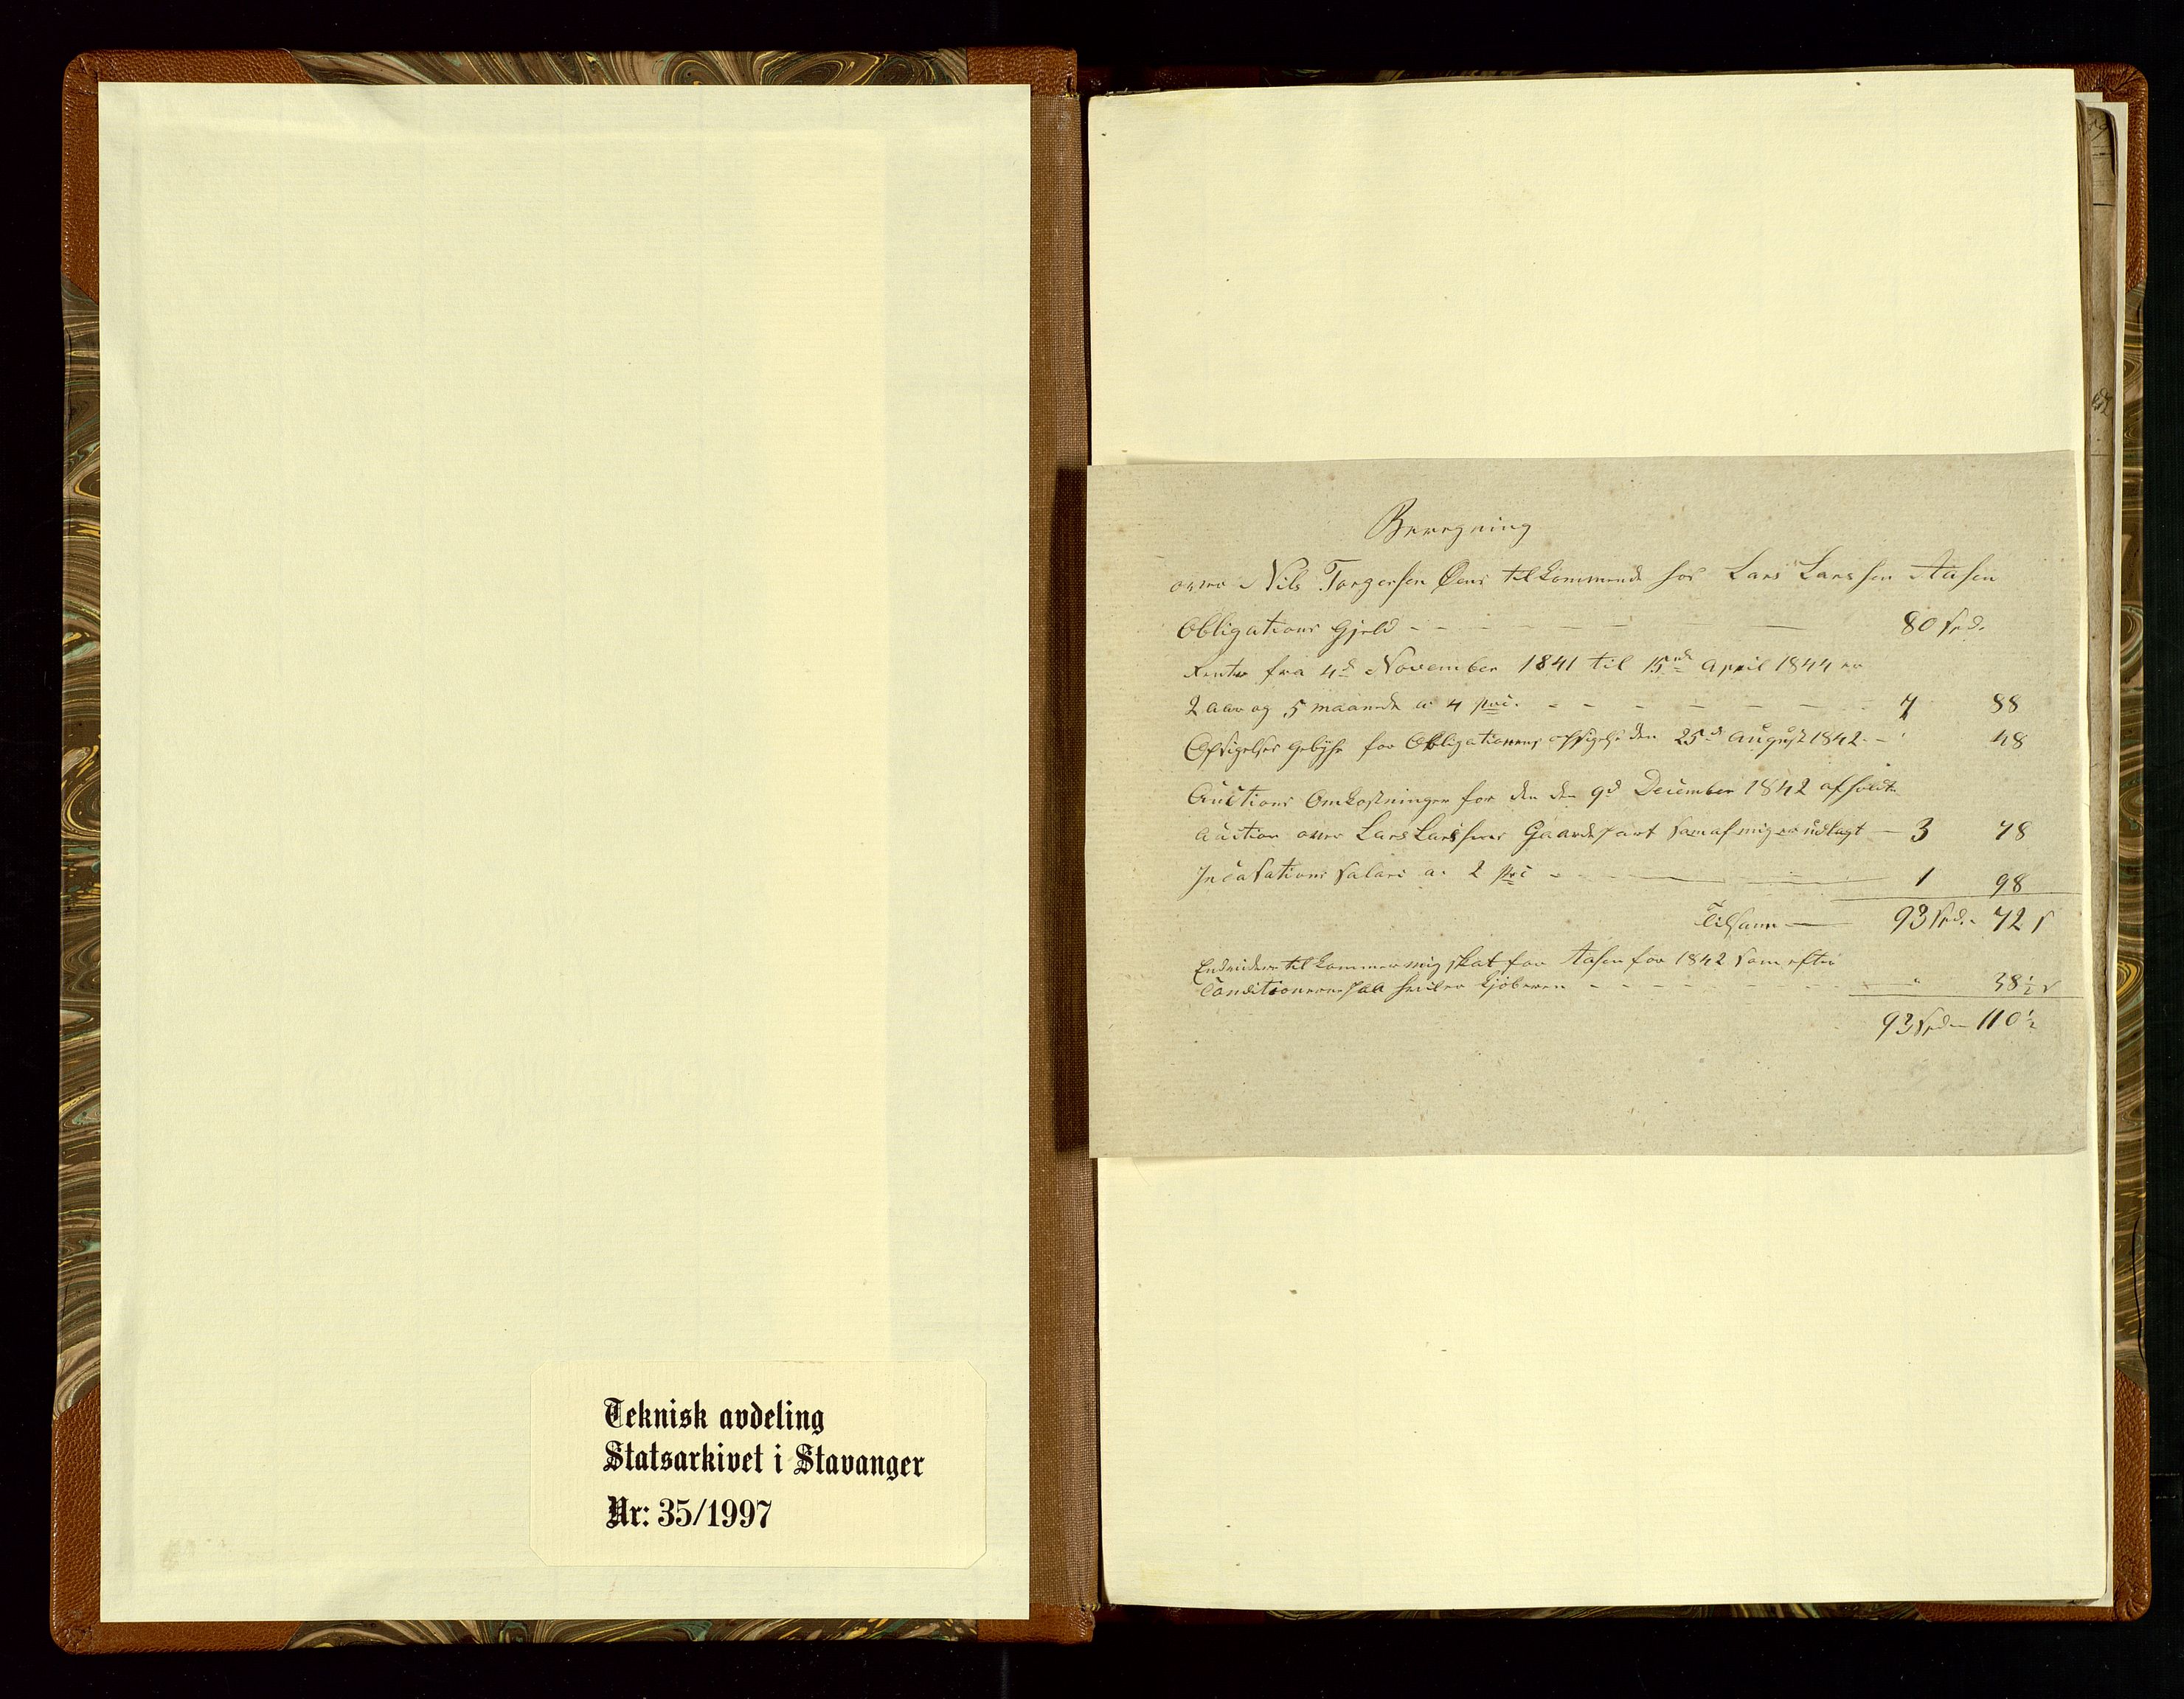 Teknisk avdeling
Statsarkivet i Stavanger
Nr: 35/1997
Beregning
over Nils Torgersen Øens tilkommende hos Lars Larssen Aasen
Obligations Gjeld - - - - - 80 Spd.
Rente fra 4d November 1841 til 15nde April 1844 er
2 Aar og 5 maaneder a 4 pCt. - - - - - 7 88
Opsigelses Gebyhr for Obligationens opsigelse den 25de August 1842. - " 48
Auctions Omkostninger for den den 9d December 1842 afholdte
Auction over Lars Larssens Gaardepart som af mig er udlagt - 3 78
Incasations Salari a. 2 pCt - - - 1 98
Tilsamn - 93 Spd. - 72 s
Endvidere tilkommer mig skat for Aasen for 1842 som efter
Conditionerne skal Kjøberen - - - - - " 38½ s
93 Spd - 110½